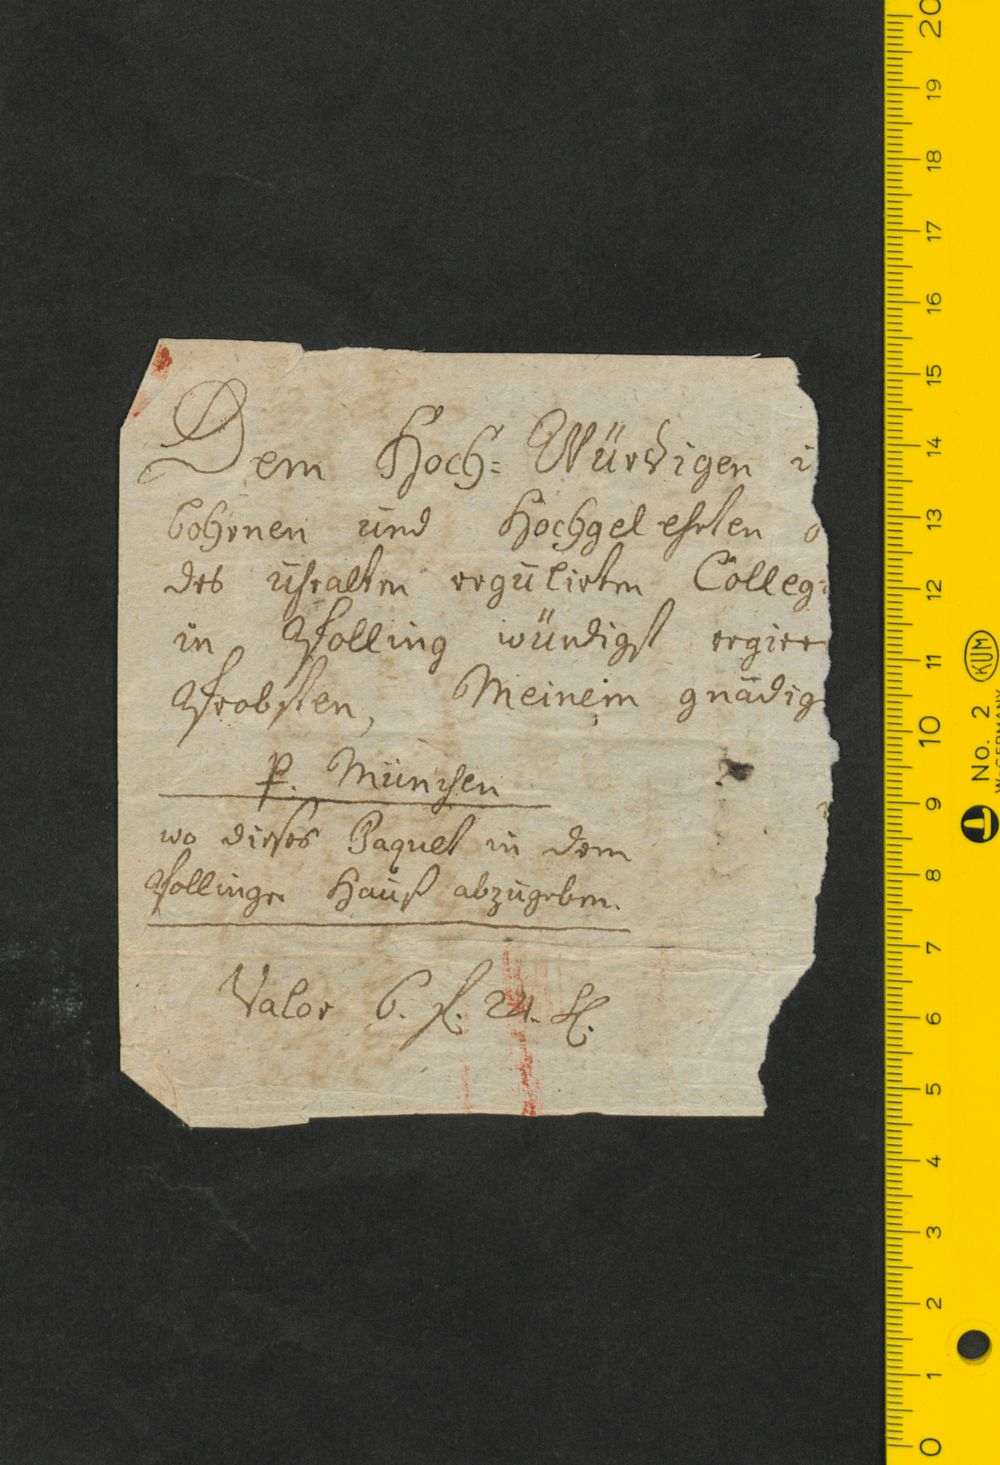 Dem Hoch= Würdigen
bohrnen und Hochgelehrten
des uhralten regulirten Colleg
in Polling würdigst regier
Probsten, Meinem gnädig
P. München
wo dieses Paquet in dem
Pollinger Hauß abzugeben.
Valor 6. fl. 24. x.
20
19
18
17
16
15
14
13
12
11
10
9
8
7
6
5
4
3
2
1
0
KUM
No. 2
W-GERMANY